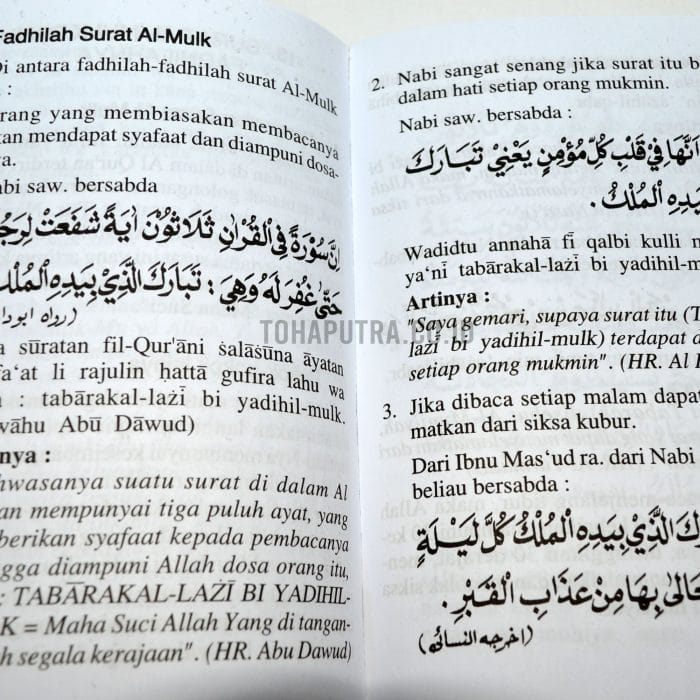 Fadhilah Surat Al-Mulk
Di antara fadhilah-fadhilah surat Al-Mulk
:
rang yang membiasakan membacanya
kan mendapat syafaat dan diampuni dosa-
ya.
abi saw. bersabda
اِنَّ سُوْرَةً فِى الْقُرْاٰنِ ثَلَاثُوْنَ اٰيَةً شَفَعَتْ لِرَجُ
حَتّٰى غُفِرَ لَهُ وَهِيَ : تَبَارَكَ الَّذِيْ بِيَدِهِ الْمُلْك
(رواه ابودا
a sūratan fil-Qur'āni ṡalāṡūna āyatan
fa'at li rajulin hattā gufira lahu wa
: tabārakal-lażī bi yadihil-mulk.
wāhu Abū Dāwud)
nya :
hwasanya suatu surat di dalam Al
an mempunyai tiga puluh ayat, yang
berikan syafaat kepada pembacanya
ngga diampuni Allah dosa orang itu,
: TABĀRAKAL-LAŻĪ BI YADIHIL-
K = Maha Suci Allah Yang di tangan-
h segala kerajaan". (HR. Abu Dawud)
2. Nabi sangat senang jika surat itu b
dalam hati setiap orang mukmin.
Nabi saw. bersabda :
اَنَّهَا فِيْ قَلْبِ كُلِّ مُؤْمِنٍ يَعْنِيْ تَبَارَكَ
بِيَدِهِ الْمُلْكُ.
Wadidtu annahā fī qalbi kulli m
ya'nī tabārakal-lażī bi yadihil-m
Artinya :
"Saya gemari, supaya surat itu (T
lażī bi yadihil-mulk) terdapat d
setiap orang mukmin". (HR. Al
3. Jika dibaca setiap malam dapat
matkan dari siksa kubur.
Dari Ibnu Mas'ud ra. dari Nabi
beliau bersabda :
رَكَ الَّذِيْ بِيَدِهِ الْمُلْكُ كُلَّ لَيْلَةٍ
تَعَالٰى بِهَا مِنْ عَذَابِ الْقَبْرِ.
(اخرجه النسائى)
TOHAPUTRA.CO.ID